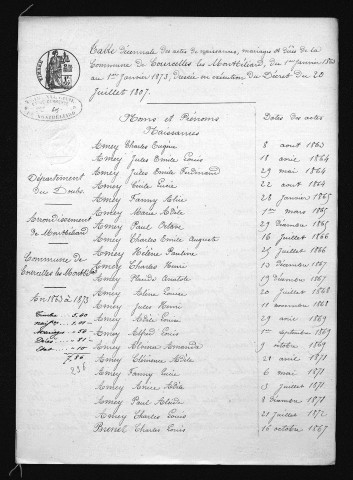 Table décennale des actes de naissances, mariages et décès de la
Commune de Courcelles les Montbéliard, du 1er Janvier 1863
au 1er Janvier 1873, dressée en exécution du Décret du 20
Juillet 1807.
Noms et Prénoms
Dates des actes
Naissances
Amey Charles Eugène 8 août 1863
Amey Jules Emile Louis 18 avril 1864
Amey Jules Emile Ferdinand 29 mai 1864
Amey Lucie 22 août 1864
Amey Fanny Elise 28 janvier 1865
Amey Marie Adèle 1er mars 1865
Amey Paul Octave 29 Décembre 1865
Amey Charles Emile Auguste 16 Juillet 1866
Amey Hélène Pauline 25 Juillet 1866
Amey Charles Henri 13 Décembre 1867
Amey Anatole 19 Décembre 1867
Amey Louise 20 Juillet 1868
Amey Jules Henri 11 novembre 1868
Amey Adèle Louise 29 avril 1869
Amey Alfred Louis 1er septembre 1869
Amey Amanda 9 octobre 1869
Amey Adèle 21 avril 1871
Amey Fanny Lucie 6 mai 1871
Amey Adèle 15 Juillet 1871
Amey Paul 2 Décembre 1871
Amey Charles Louis 21 Juillet 1872
Charles Louis 16 octobre 1867
Département
du Doubs
Arrondissement
de Montbéliard
Commune de
Courcelles les Montbéliard
En 1863 à 1873
Mariages
Décès
7.80